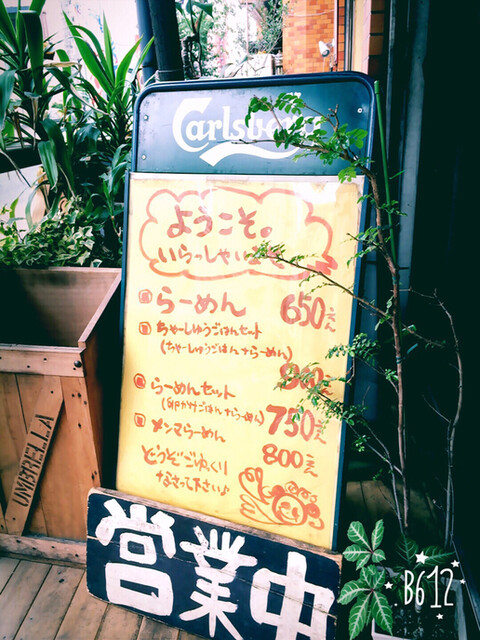 Carlsberg
ようこそ。
いらっしゃいませ
らーめん 650えん
ちゃーしゅうごはんセット
(ちゃーしゅうごはん+らーめん)
らーめんセット
(卵かけごはん+らーめん) 750えん
メンマらーめん
800えん
どうぞごゆっくり
なさって下さい♪
営業中
UMBRELLA
B612